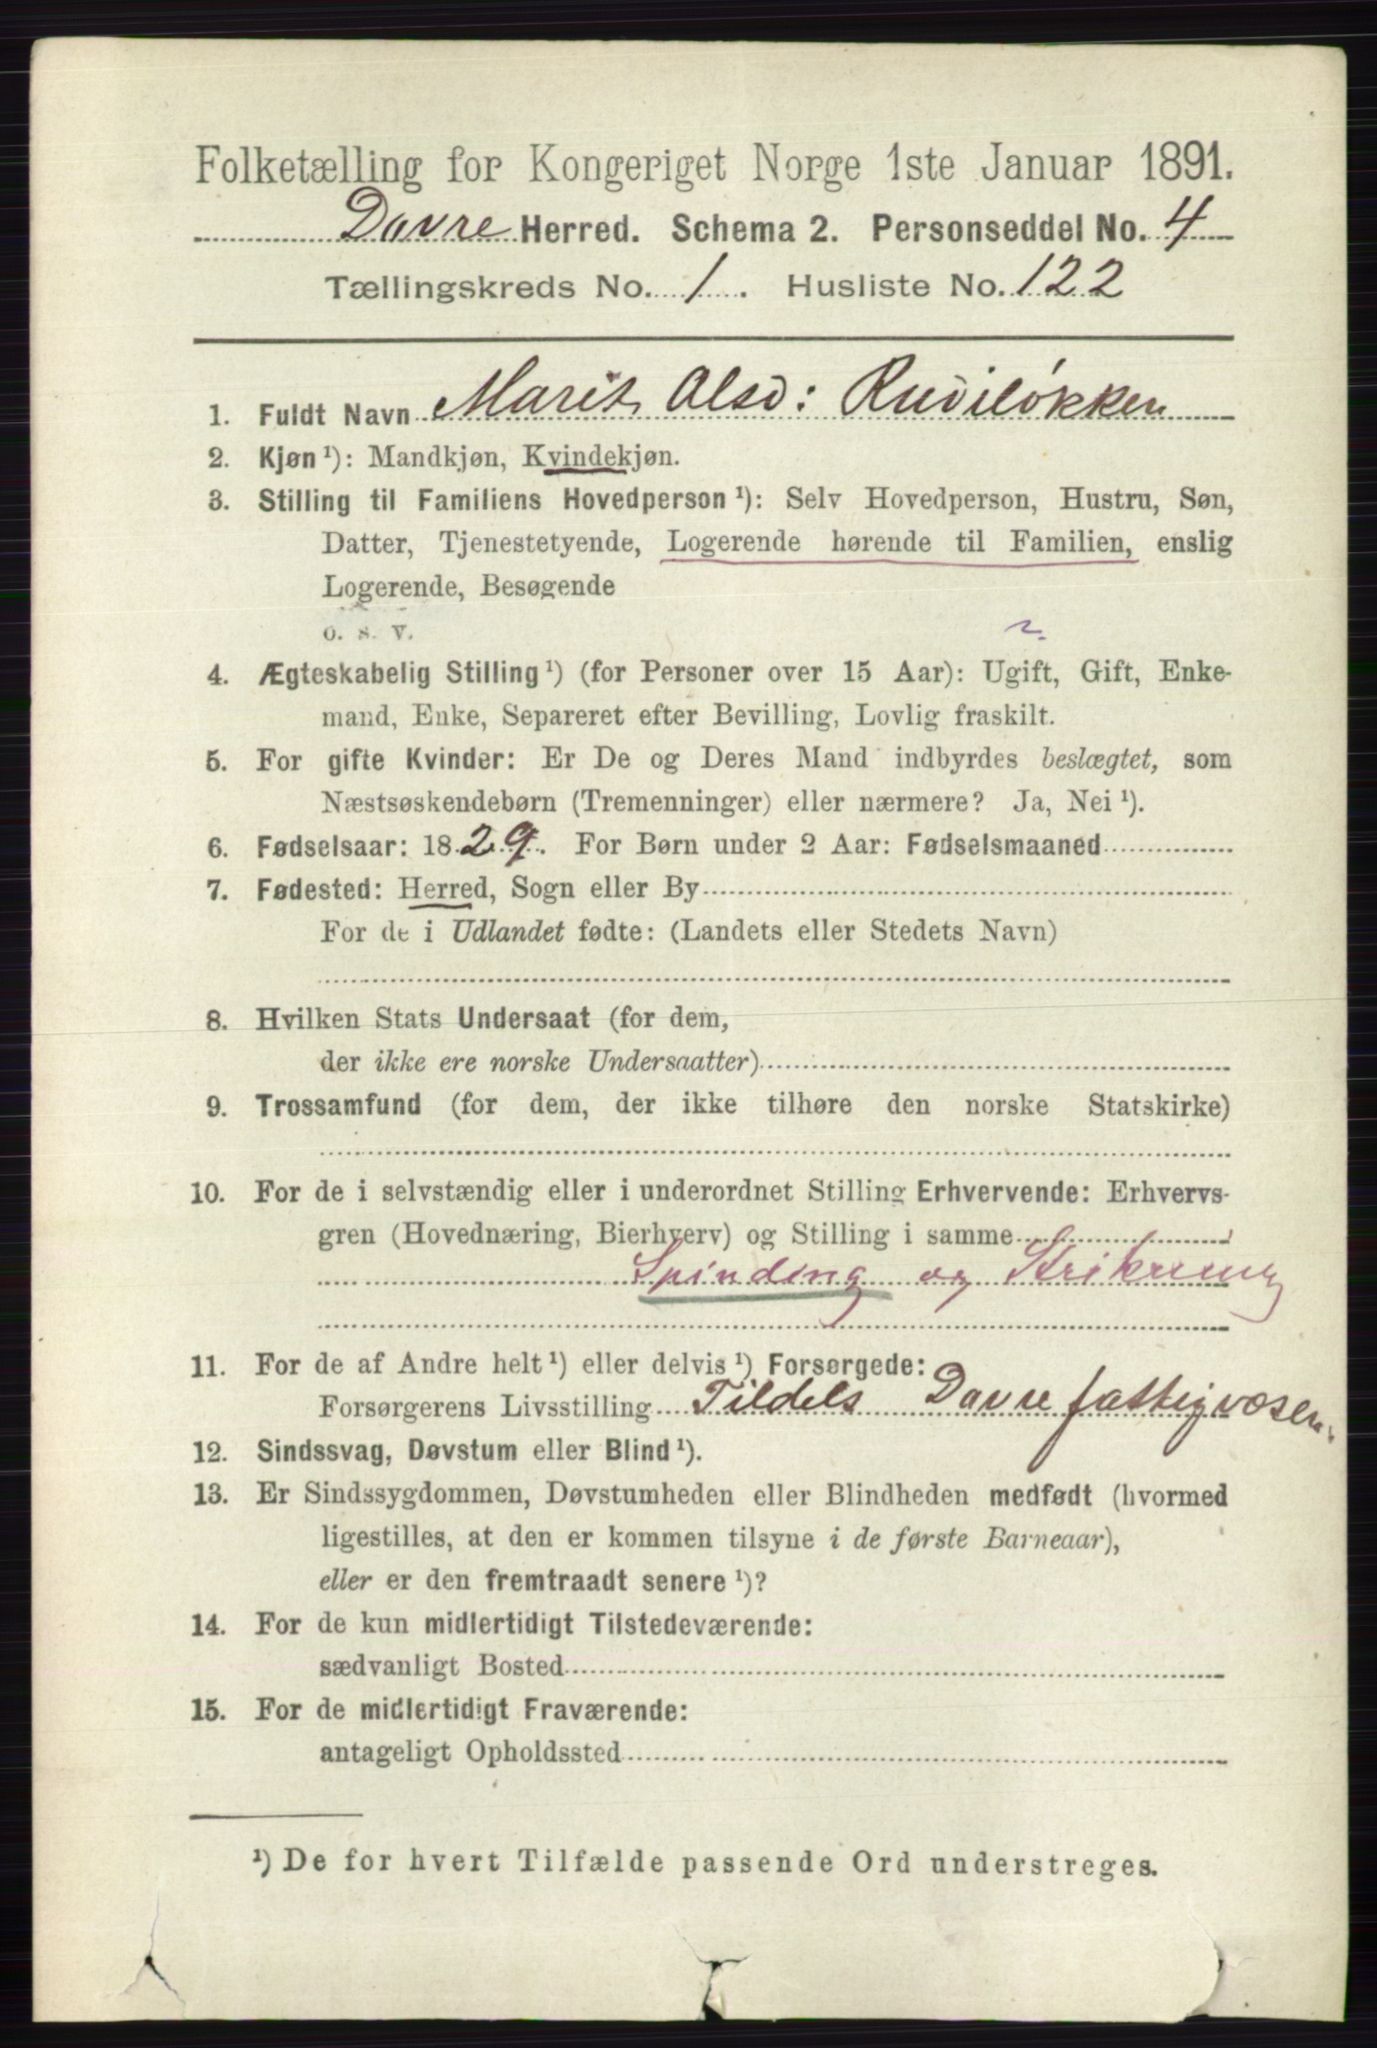 Folketælling for Kongeriget Norge 1ste Januar 1891.
Dovre Herred. Schema 2. Personseddel No. 4
Tællingskreds No. 1. Husliste No. 122
1. Fuldt Navn Marit Olsd: Rudiløkken
2. Kjøn ¹): Mandkjøn, Kvindekjøn.
3. Stilling til Familiens Hovedperson ¹): Selv Hovedperson, Hustru, Søn,
Datter, Tjenestetyende, Logerende hørende til Familien, enslig
Logerende, Besøgende
o. s. v.
4. Ægteskabelig Stilling ¹) (for Personer over 15 Aar): Ugift, Gift, Enke-
mand, Enke, Separeret efter Bevilling, Lovlig fraskilt.
5. For gifte Kvinder: Er De og Deres Mand indbyrdes beslægtet, som
Næstsøskendebørn (Tremenninger) eller nærmere? Ja, Nei ¹).
6. Fødselsaar: 1829. For Børn under 2 Aar: Fødselsmaaned
7. Fødested: Herred, Sogn eller By
For de i Udlandet fødte: (Landets eller Stedets Navn)
8. Hvilken Stats Undersaat (for dem,
der ikke ere norske Undersaatter)
9. Trossamfund (for dem, der ikke tilhøre den norske Statskirke)
10. For de i selvstændig eller i underordnet Stilling Erhvervende: Erhvervs-
gren (Hovednæring, Bierhverv) og Stilling i samme
Spinding og Strikning
11. For de af Andre helt ¹) eller delvis ¹) Forsørgede:
Forsørgerens Livsstilling Tildels Dovre fattigvæsen.
12. Sindssvag, Døvstum eller Blind ¹).
13. Er Sindssygdommen, Døvstumheden eller Blindheden medfødt (hvormed
ligestilles, at den er kommen tilsyne i de første Barneaar),
eller er den fremtraadt senere ¹)?
14. For de kun midlertidigt Tilstedeværende:
sædvanligt Bosted
15. For de midlertidigt Fraværende:
antageligt Opholdssted
¹) De for hvert Tilfælde passende Ord understreges.